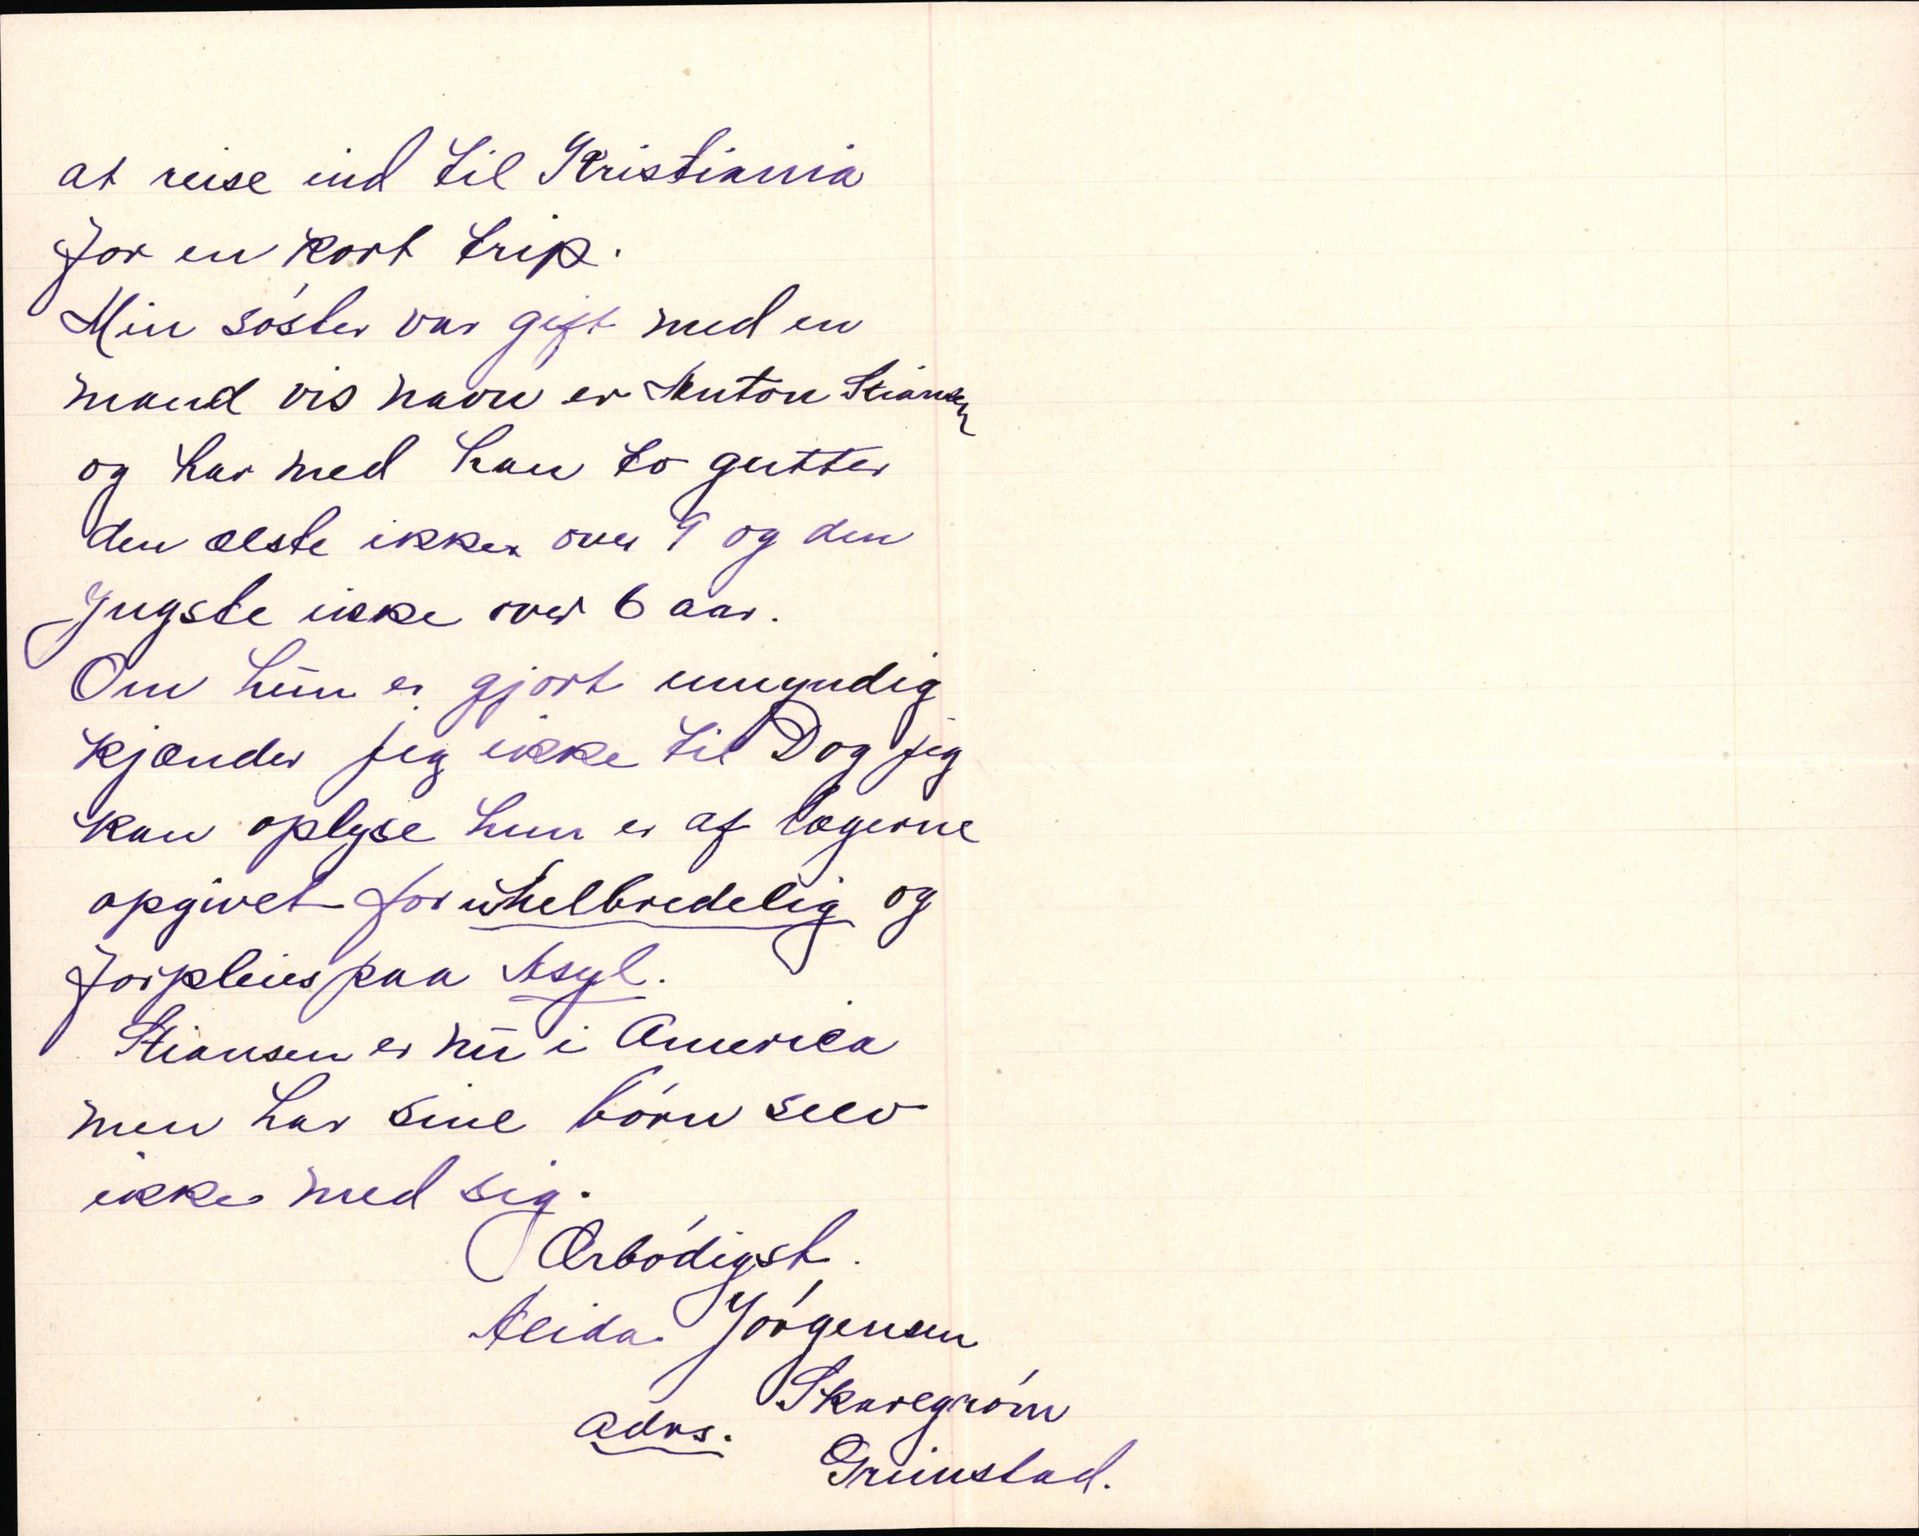 at reise ind til Kristiania
for en kort trip.
Min sóster var gift med en
mand vis navn er Anton Stiansen
og har med han to gutter
den ælste ikke over 9 og den
Yngste ikke over 6 aar.
Om hun er gjort umyndig
kjænder jeg ikke til Dog jeg
kan oplyse hun er af lægerne
opgivet for uhelbredelig og
forpleies paa Asyl.
Stiansen er nu i America
men har sine bórn selv
ikke med sig.
Ærbódigst.
Alida Jórgensen
Skaregróm
adrs.
Grimstad.